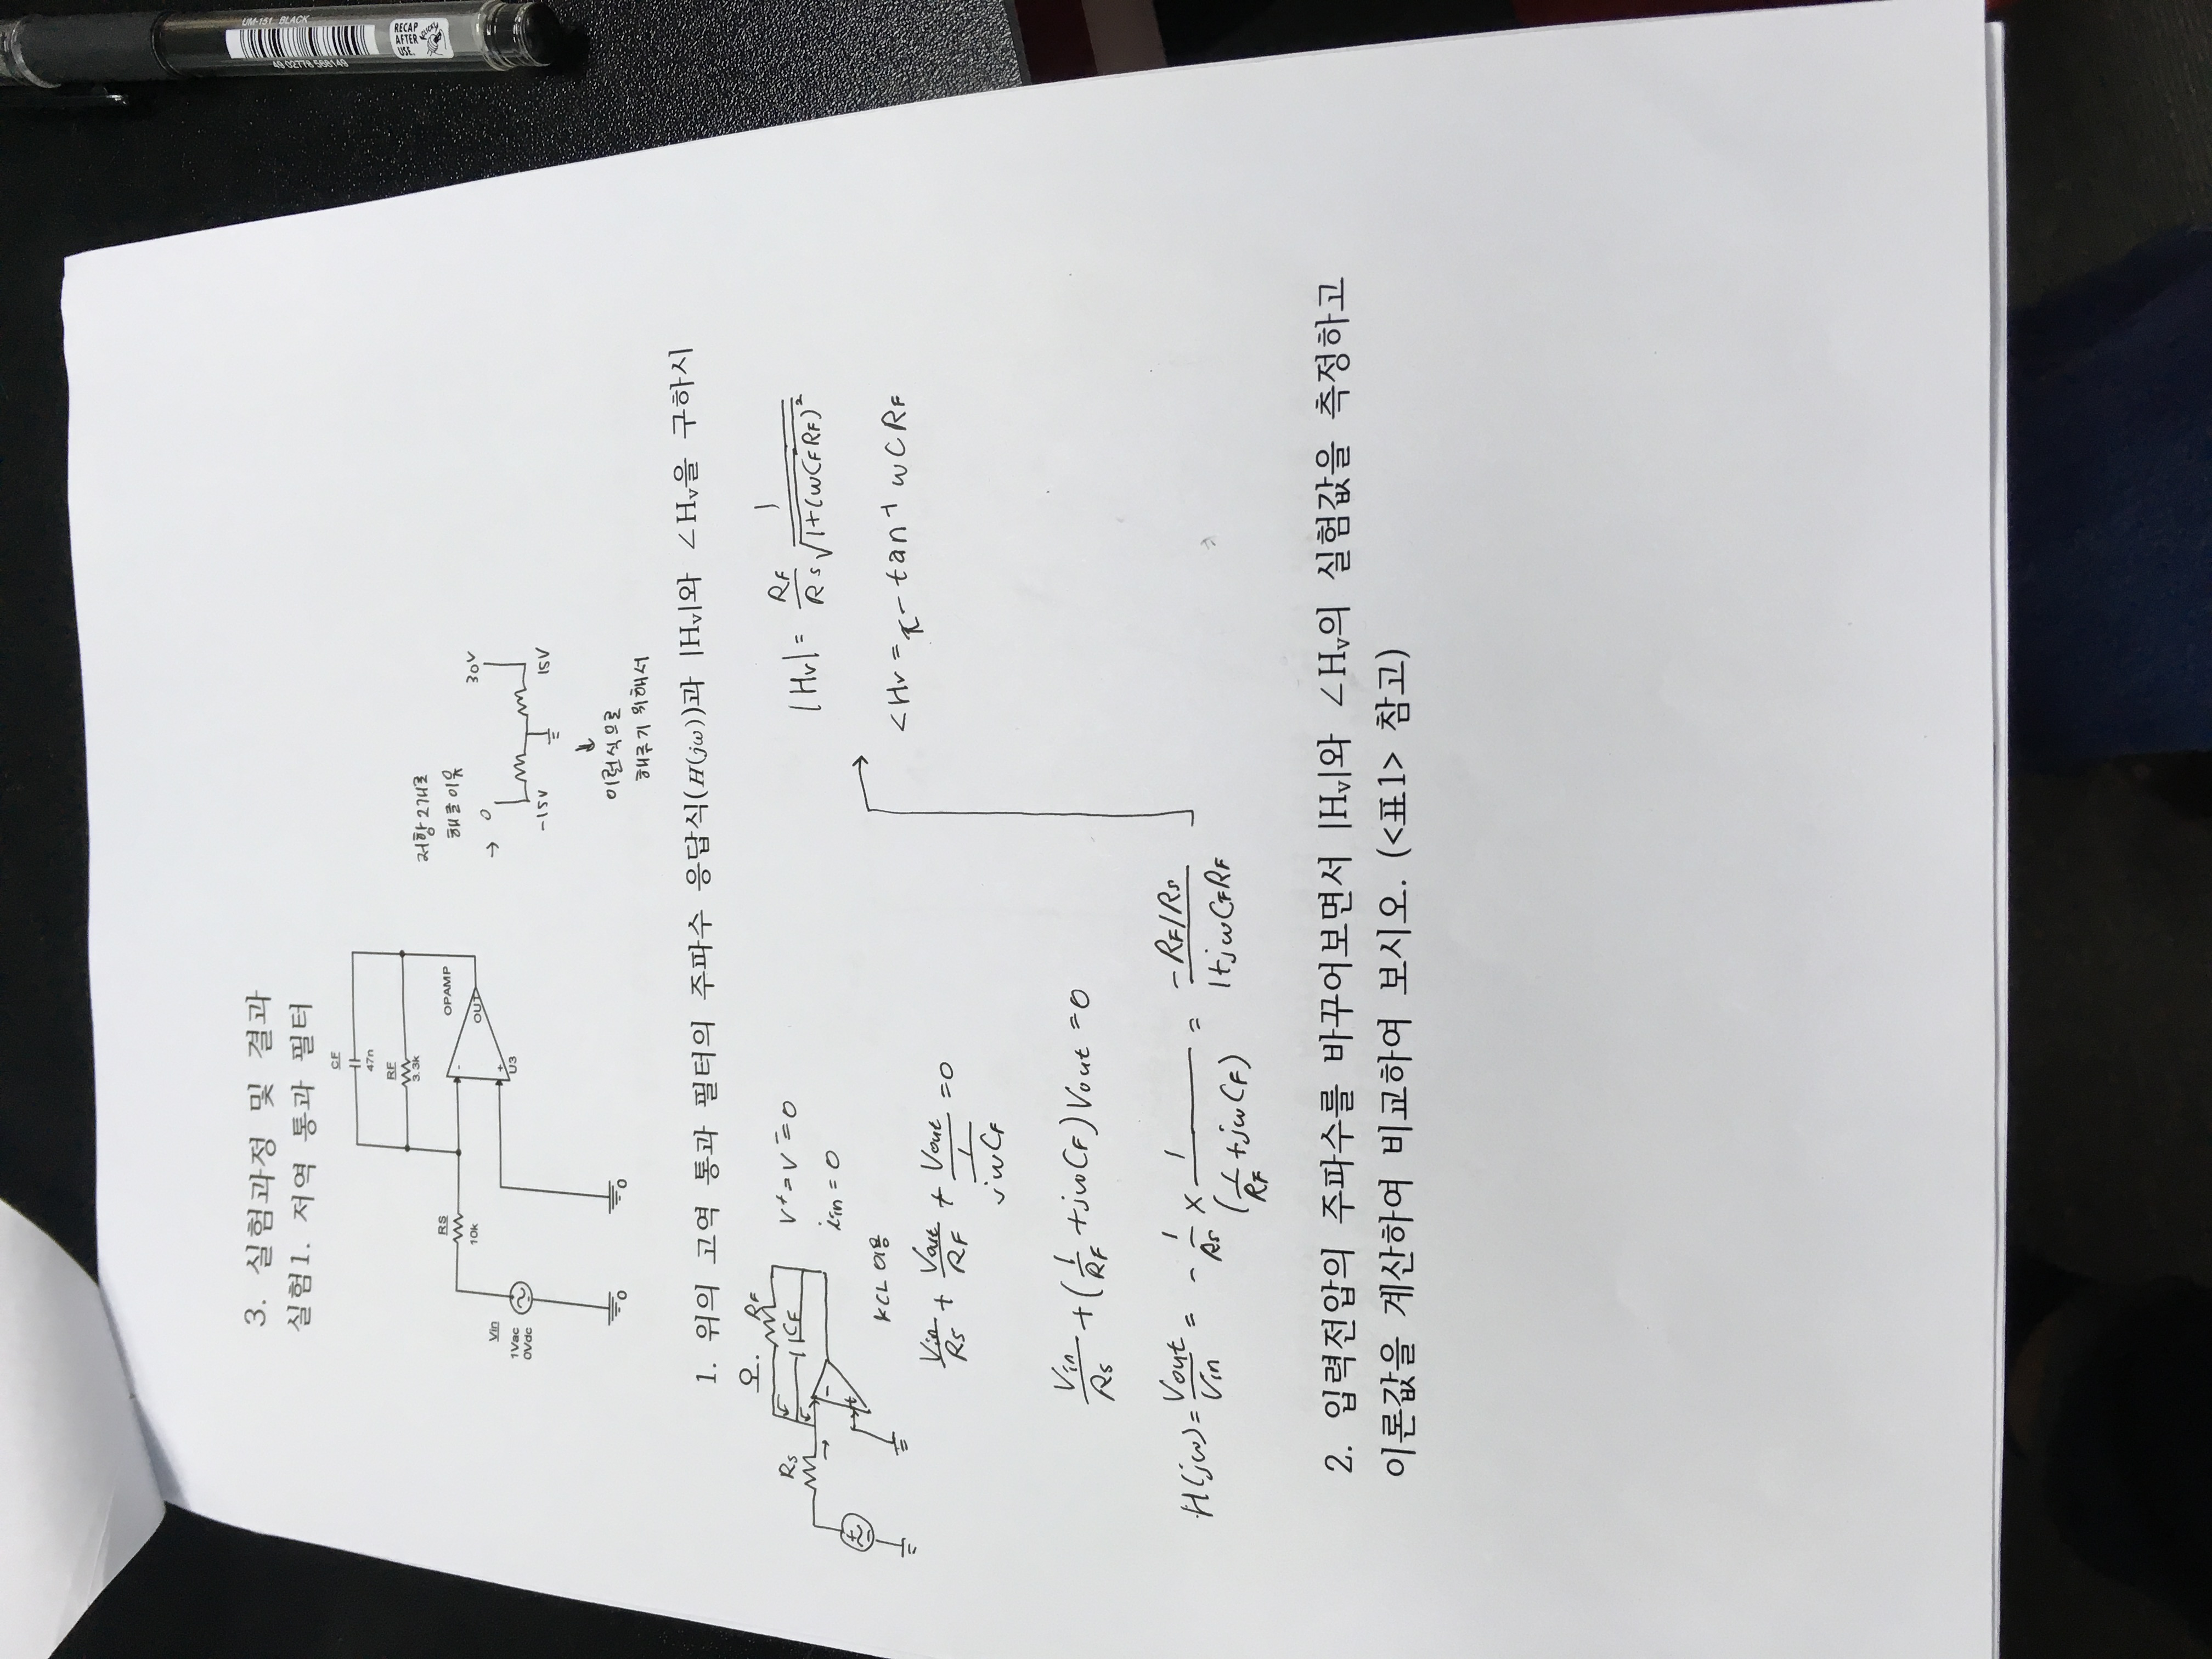 3. 실험과정 및 결과
실험1. 저역 통과 필터
CF
47n
RF
3.3k
RS
10k
OPAMP
OUT
U3
Vin
1Vac
0Vdc
0
0
저항 2개로
해준 이유
→ 0 30V
-15V 15V
↓
이런식으로
해주기 위해서
1. 위의 고역 통과 필터의 주파수 응답식(H(jω))과 |Hv|와 ∠Hv을 구하시
오.
RF
Rs
CF
V⁺=V⁻=0
iin = 0
KCL 이용
Vin/Rs + Vout/RF + Vout/(1/jωCF) = 0
Vin/Rs + (1/RF + jωCF) Vout = 0
H(jω) = Vout/Vin = - 1/Rs × 1/(1/RF + jωCF) = -RF/Rs / 1+jωCFRF
|Hv| = RF/Rs 1/√(1+(ωCFRF)²)
∠Hv = π - tan⁻¹ ωCRF
2. 입력전압의 주파수를 바꾸어보면서 |Hv|와 ∠Hv의 실험값을 측정하고
이론값을 계산하여 비교하여 보시오. (<표1> 참고)
UM-151 BLACK
RECAP
AFTER
USE.